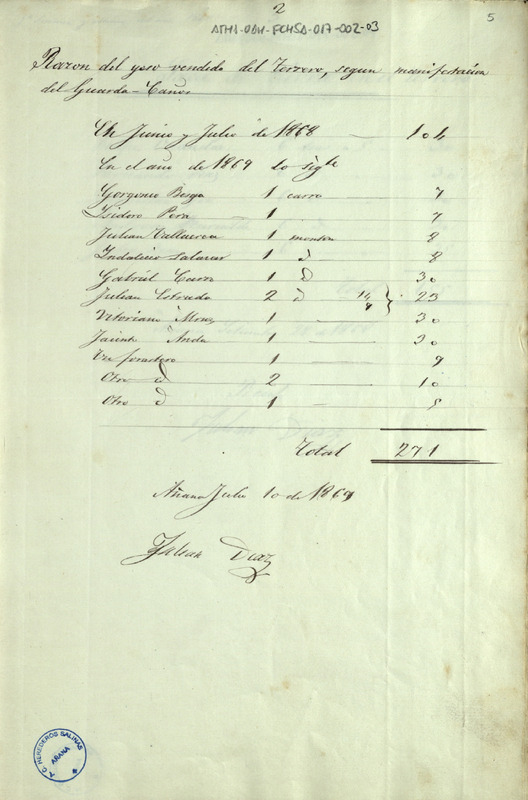 2
5
ATHA-DAH-FCHSA-017-002-03
Razon del yeso vendido del Terrero, segun manifestacion
del Guarda-Caños
En Junio y Julio de 1868 104
En el año de 1869 lo sigte
Gorgonio Berga 1 carro 7
Isidoro Pera 1 7
Julian Valluerca 1 monton 8
Indalecio Salazar 1 d 8
Gabriel Carro 1 d 30
Julian Estrada 2 d 14 9 } 23
Vitoriano 1 30
Jacinto Anda 1 30
Un forastero 1 9
Otro d 2 10
Otro d 1 5
Total 271
Añana Julio 10 de 1869
Julian Diaz
A. C. HEREDEROS SALINAS
AÑANA